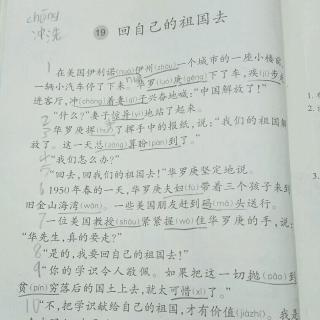 chōng
冲洗
19 回自己的祖国去
1 在美国伊利诺(nuò)伊州(zhōu)一个城市的一座小楼前,
一辆小汽车停了下来。华罗(luó)庚(gēng)下了车,疾(jí)步
进客厅,冲(chòng)着妻(qī)子兴奋地喊:“中国解放了!”
2 “什么?”妻子惊异(yì)地站了起来。
3 华罗庚挥(huī)了挥手中的报纸,说:“我们的祖国解
放了。这一天总(zǒng)算盼(pàn)到了。”
4 “我们怎么办?”
5 “回去,回我们的祖国去!”华罗庚坚定地说。
6 1950年春的一天,华罗庚夫妇(fù)带着三个孩子来到
旧金山海湾(wān)。一些美国朋友赶到码(mǎ)头送行。
7 一位美国教授(shòu)紧紧握(wò)住华罗庚的手,说:
“华先生,真的要走?”
8 “是的,我要回自己的祖国去!”
9 “你的学识令人敬佩。如果把这一切抛(pāo)到
贫(pín)穷落后的国土上去,就太可惜(xī)了。”
10 “不,把学识献给自己的祖国,才有价值(jiàzhí)。我是